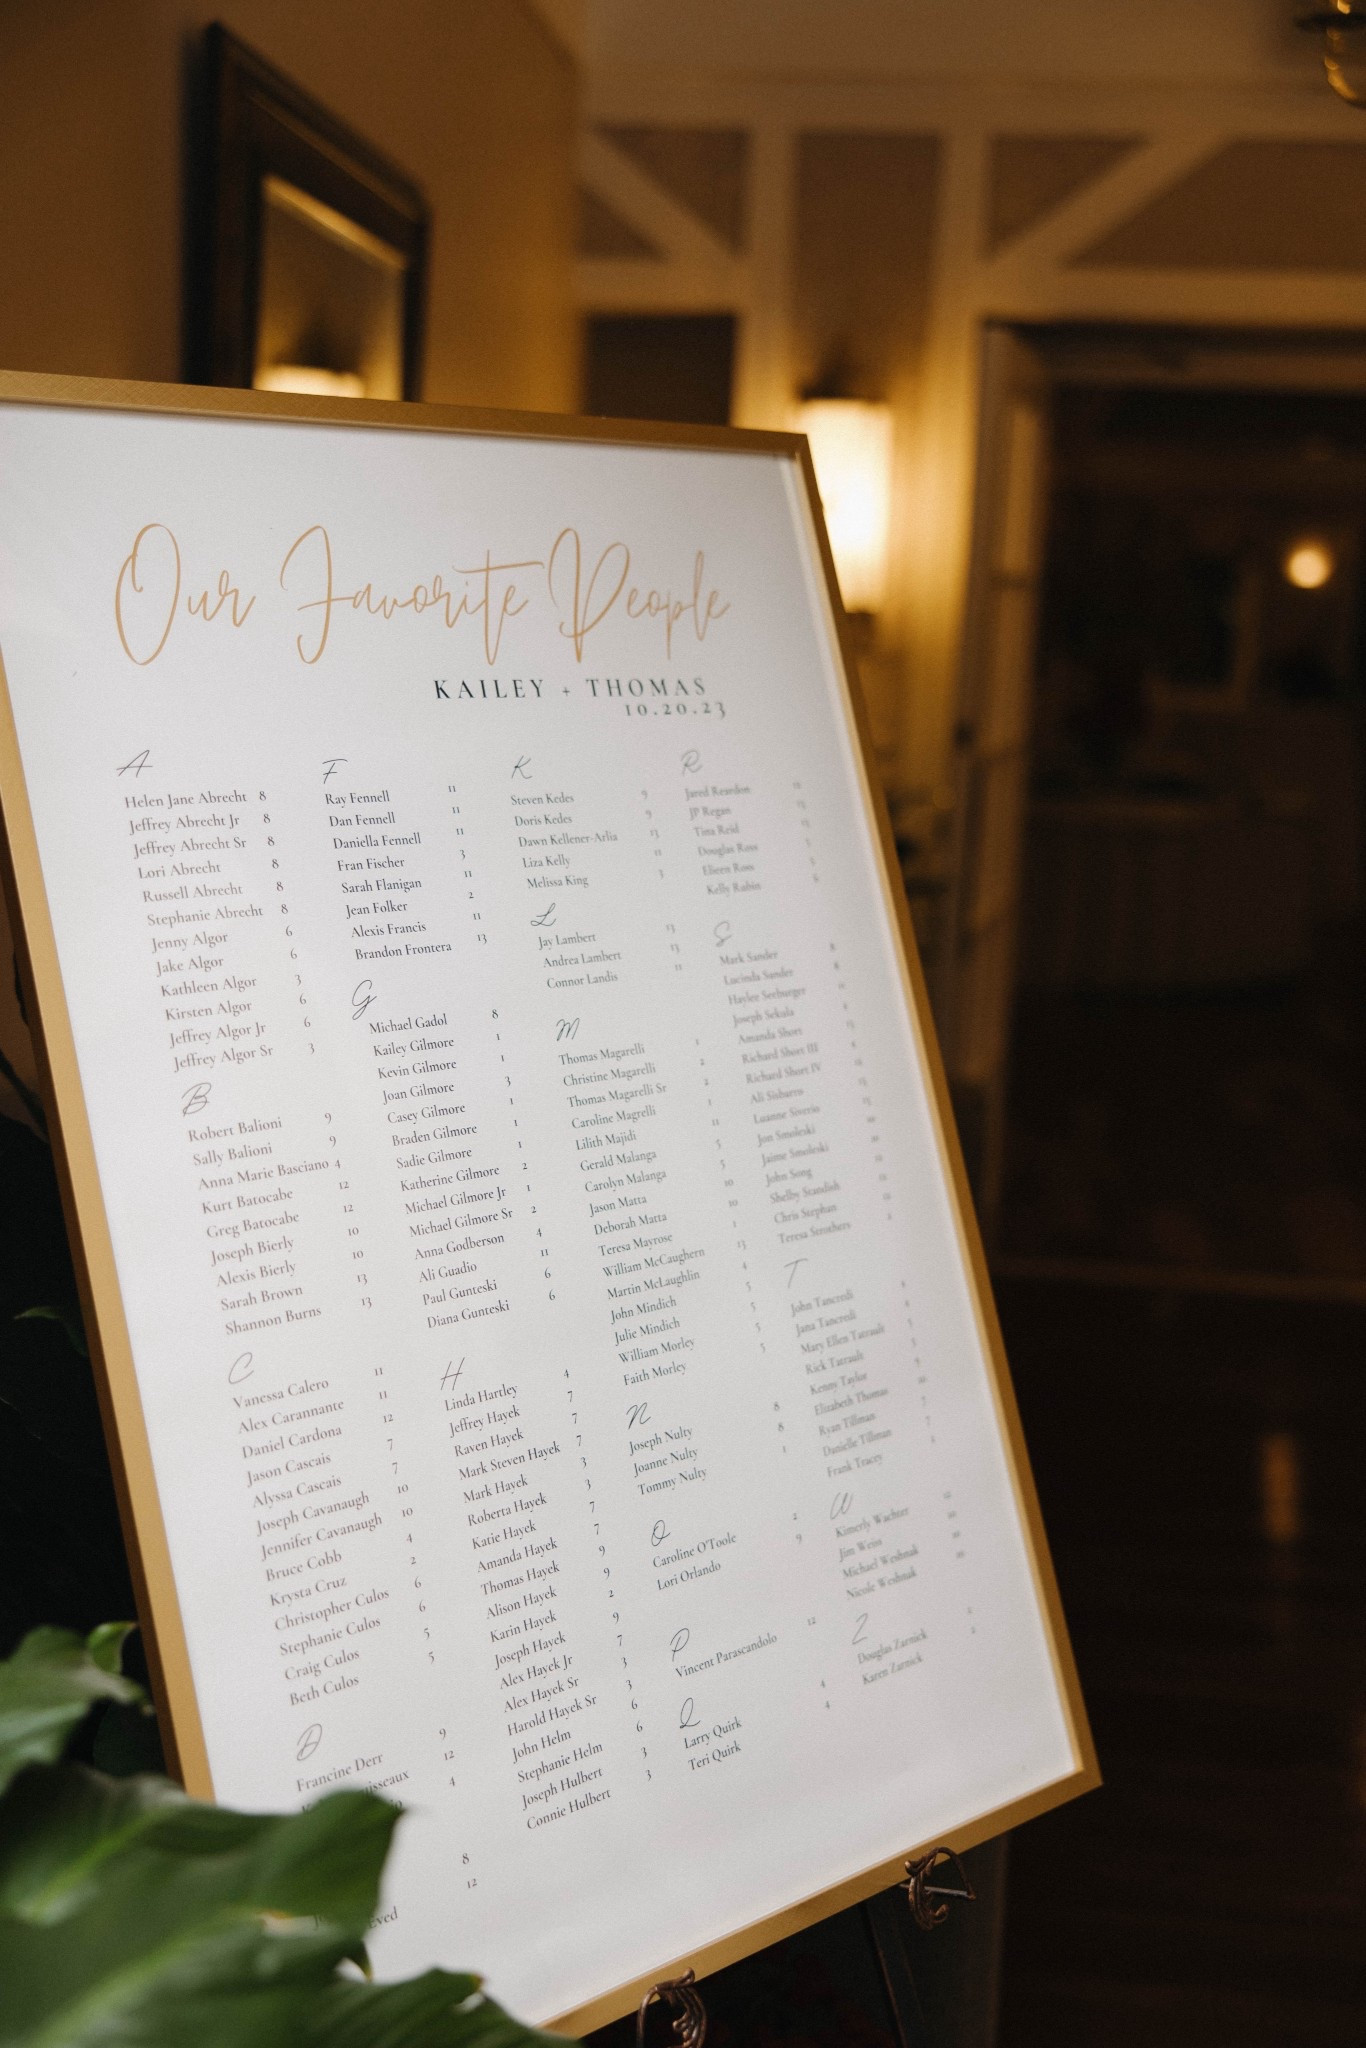 Our Favorite People
KAILEY + THOMAS
10.20.23
A
Helen Jane Abrecht 8
Jeffrey Abrecht Jr 8
Jeffrey Abrecht Sr 8
Lori Abrecht 8
Russell Abrecht 8
Stephanie Abrecht 8
Jenny Algor 6
Jake Algor 6
Kathleen Algor 3
Kirsten Algor 6
Jeffrey Algor Jr 6
Jeffrey Algor Sr 3
B
Robert Balioni 9
Sally Balioni 9
Anna Marie Basciano 4
Kurt Batocabe 12
Greg Batocabe 12
Joseph Bierly 10
Alexis Bierly 10
Sarah Brown 13
Shannon Burns 13
C
Vanessa Calero 11
Alex Carannante 11
Daniel Cardona 12
Jason Cascais 7
Alyssa Cascais 7
Joseph Cavanaugh 10
Jennifer Cavanaugh 10
Bruce Cobb 4
Krysta Cruz 2
Christopher Culos 6
Stephanie Culos 6
Craig Culos 5
Beth Culos 5
D
Francine Derr 9
12
4
8
12
F
Ray Fennell 11
Dan Fennell 11
Daniella Fennell 11
Fran Fischer 3
Sarah Flanigan 11
Jean Folker 2
Alexis Francis 11
Brandon Frontera 13
G
Michael Gadol 8
Kailey Gilmore 1
Kevin Gilmore 1
Joan Gilmore 3
Casey Gilmore 1
Braden Gilmore 1
Sadie Gilmore 1
Katherine Gilmore 2
Michael Gilmore Jr 1
Michael Gilmore Sr 2
Anna Godberson 4
Ali Guadio 11
Paul Gunteski 6
Diana Gunteski 6
H
Linda Hartley 4
Jeffrey Hayek 7
Raven Hayek 7
Mark Steven Hayek 7
Mark Hayek 3
Roberta Hayek 3
Katie Hayek 7
Amanda Hayek 7
Thomas Hayek 9
Alison Hayek 9
Karin Hayek 2
Joseph Hayek 9
Alex Hayek Jr 7
Alex Hayek Sr 3
Harold Hayek Sr 3
John Helm 6
Stephanie Helm 6
Joseph Hulbert 3
Connie Hulbert 3
K
Steven Kedes 9
Doris Kedes 9
Dawn Kellener-Arlia 13
Liza Kelly 11
Melissa King 3
L
Jay Lambert 13
Andrea Lambert 13
Connor Landis 11
M
Thomas Magarelli 1
Christine Magarelli 2
Thomas Magarelli Sr 2
Caroline Magrelli 1
Lilith Majidi 11
Gerald Malanga 5
Carolyn Malanga 5
Jason Matta 10
Deborah Matta 10
Teresa Mayrose 1
William McCaughern 13
Martin McLaughlin 4
John Mindich 5
Julie Mindich 5
William Morley 5
Faith Morley 5
N
Joseph Nulty 8
Joanne Nulty 8
Tommy Nulty 1
O
Caroline O'Toole 2
Lori Orlando 9
P
Vincent Parascandolo 12
Q
Larry Quirk 4
Teri Quirk 4
R
Jared Rearden
JP Regan
Tina Reid
Douglas Ross
Eileen Ross
Kelly Rubin
S
Mark Sander 8
Lucinda Sander 8
Haylee Seeburger
Joseph Sekula
Amanda Short
Richard Short III
Richard Short IV
Ali Sisbarro
Luanne Siverio
Jon Smoleski
Jaime Smoleski
John Song
Shelby Standish
Chris Stephan
Teresa Strothers
T
John Tancredi
Jana Tancredi
Mary Ellen Tatrault
Rick Tatrault
Kenny Taylor
Elizabeth Thomas
Ryan Tillman 7
Danielle Tillman 7
Frank Tracey
W
Kimerly Wachter
Jim Weiss
Michael Weshnak
Nicole Weshnak
Z
Douglas Zarnick
Karen Zarnick